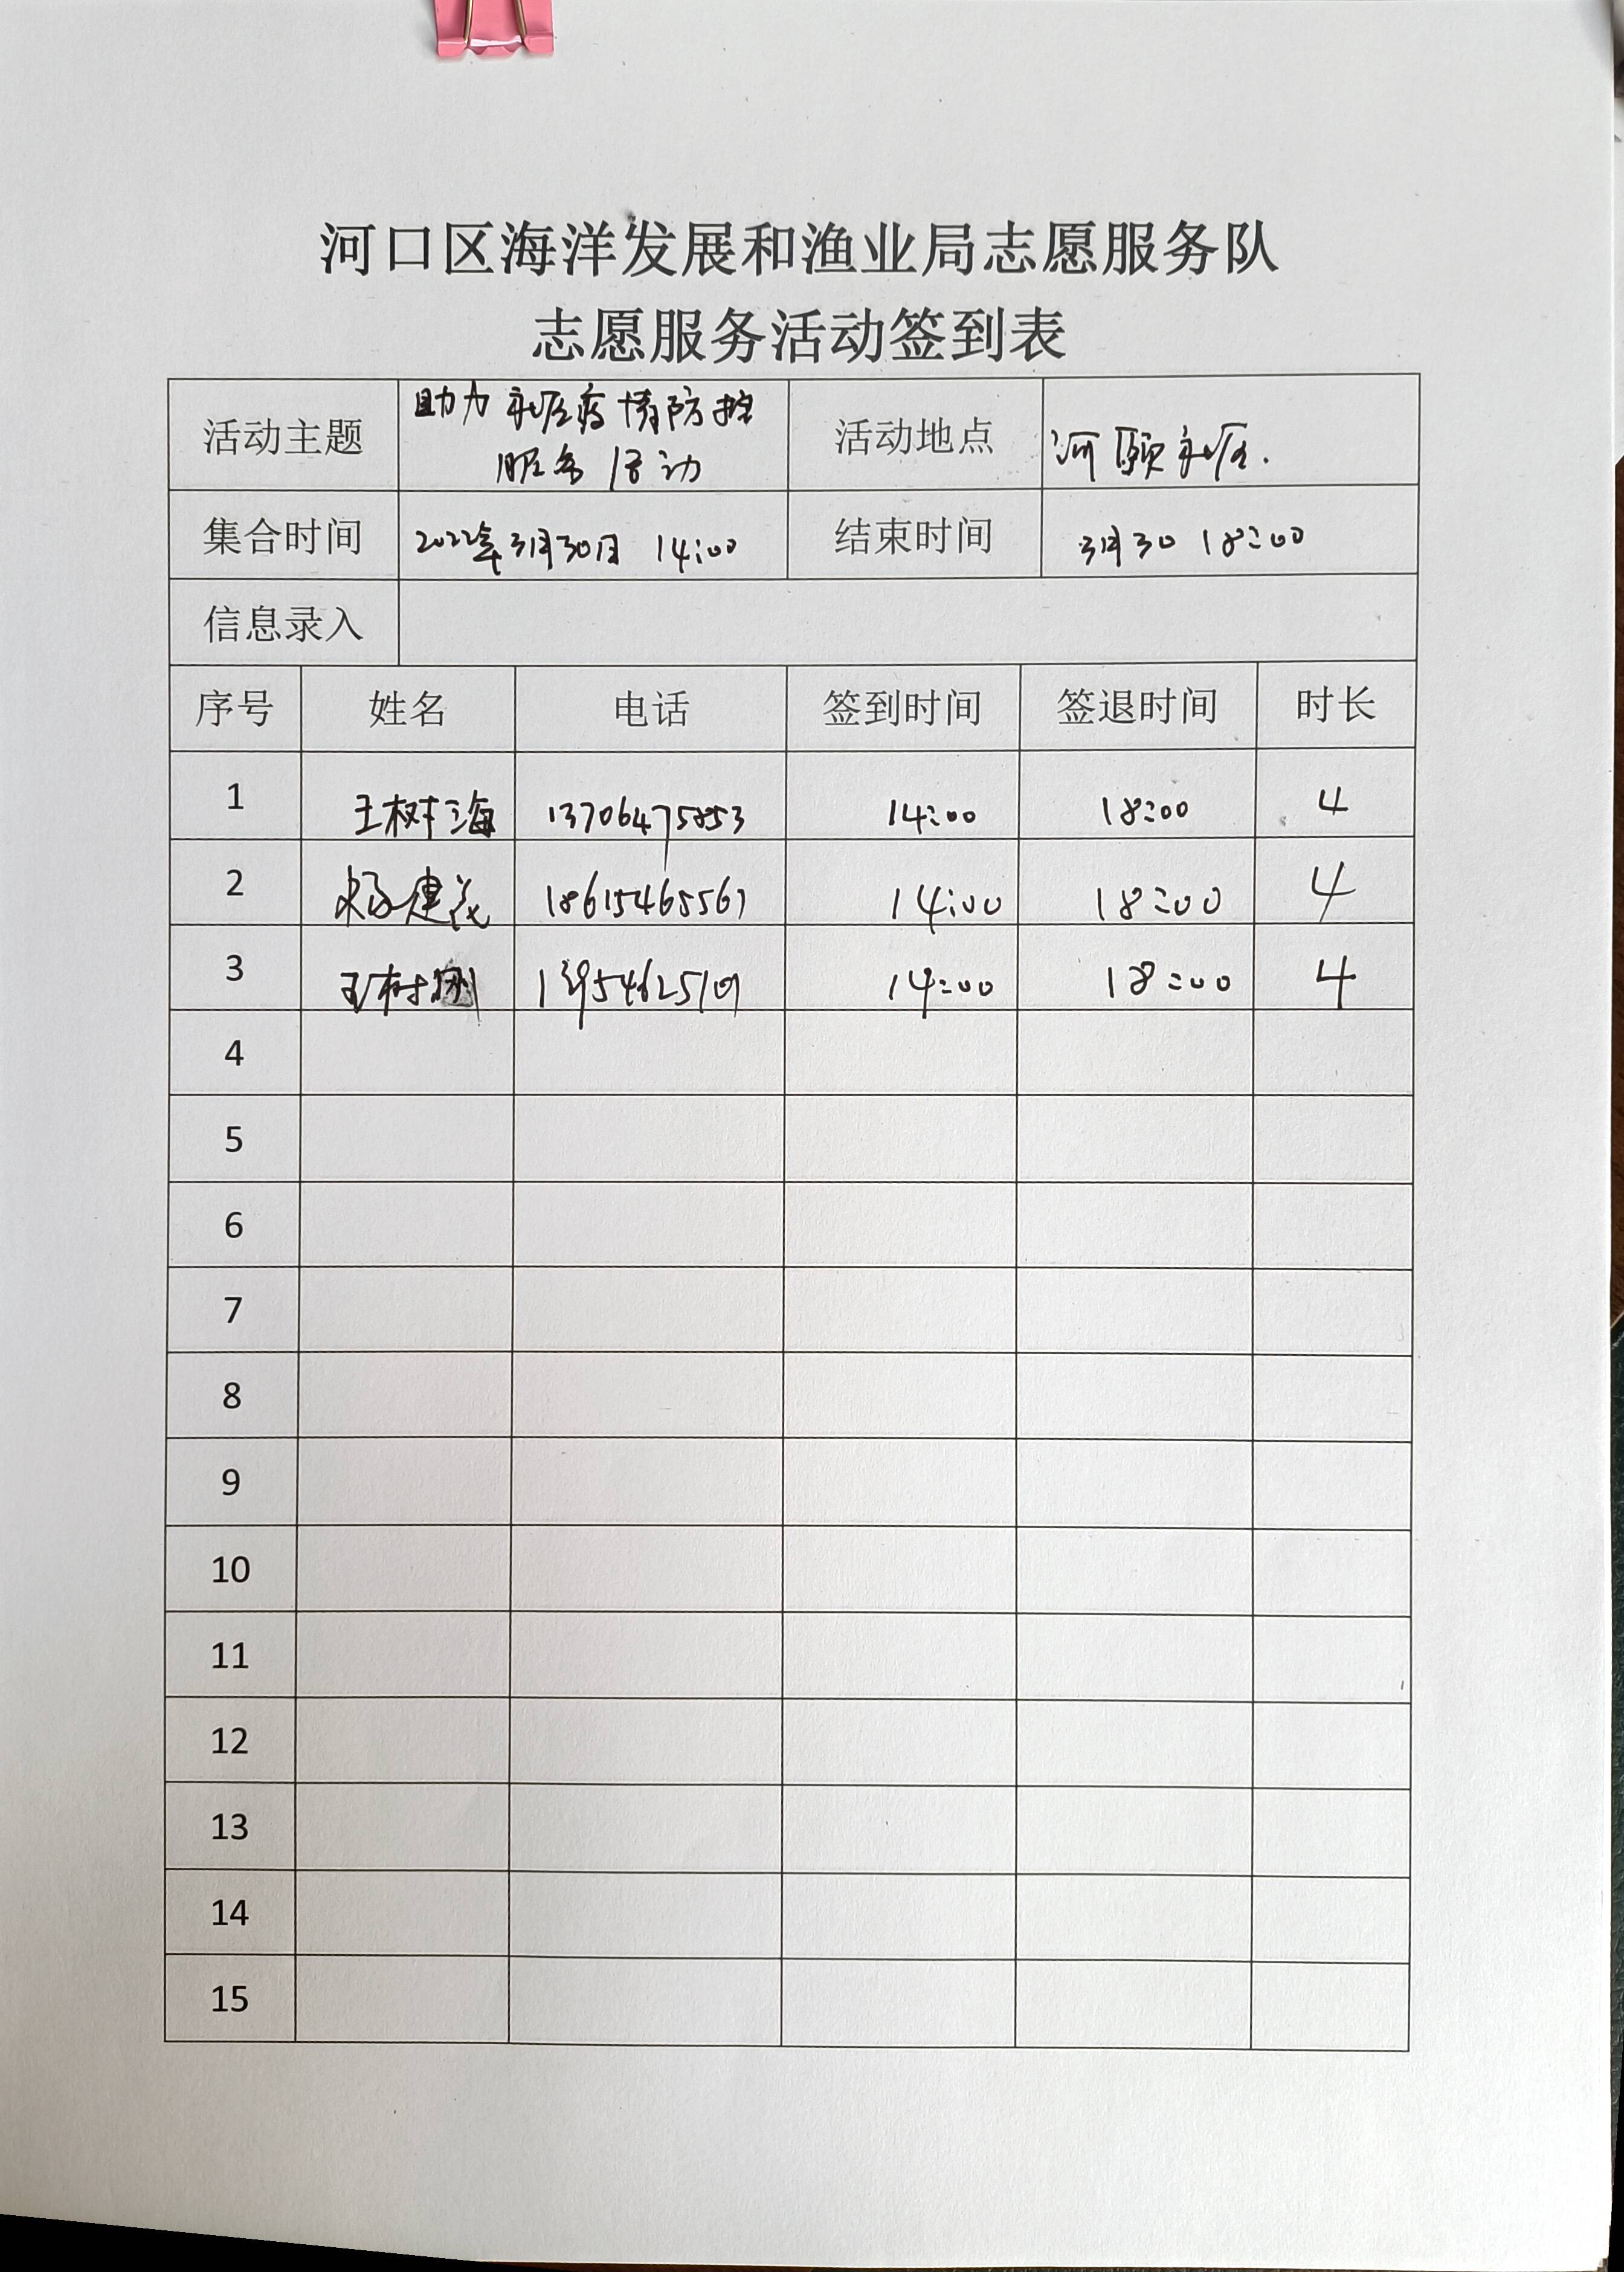 河口区海洋发展和渔业局志愿服务队
志愿服务活动签到表
活动主题 助力社区疫情防控服务活动 活动地点 河颐社区.
集合时间 2022年3月30日 14:00 结束时间 3月30 18:00
信息录入
序号 姓名 电话 签到时间 签退时间 时长
1 王树海 13706475853 14:00 18:00 4
2 杨建茂 18615465567 14:00 18:00 4
3 王树 14:00 18:00 4
4
5
6
7
8
9
10
11
12
13
14
15